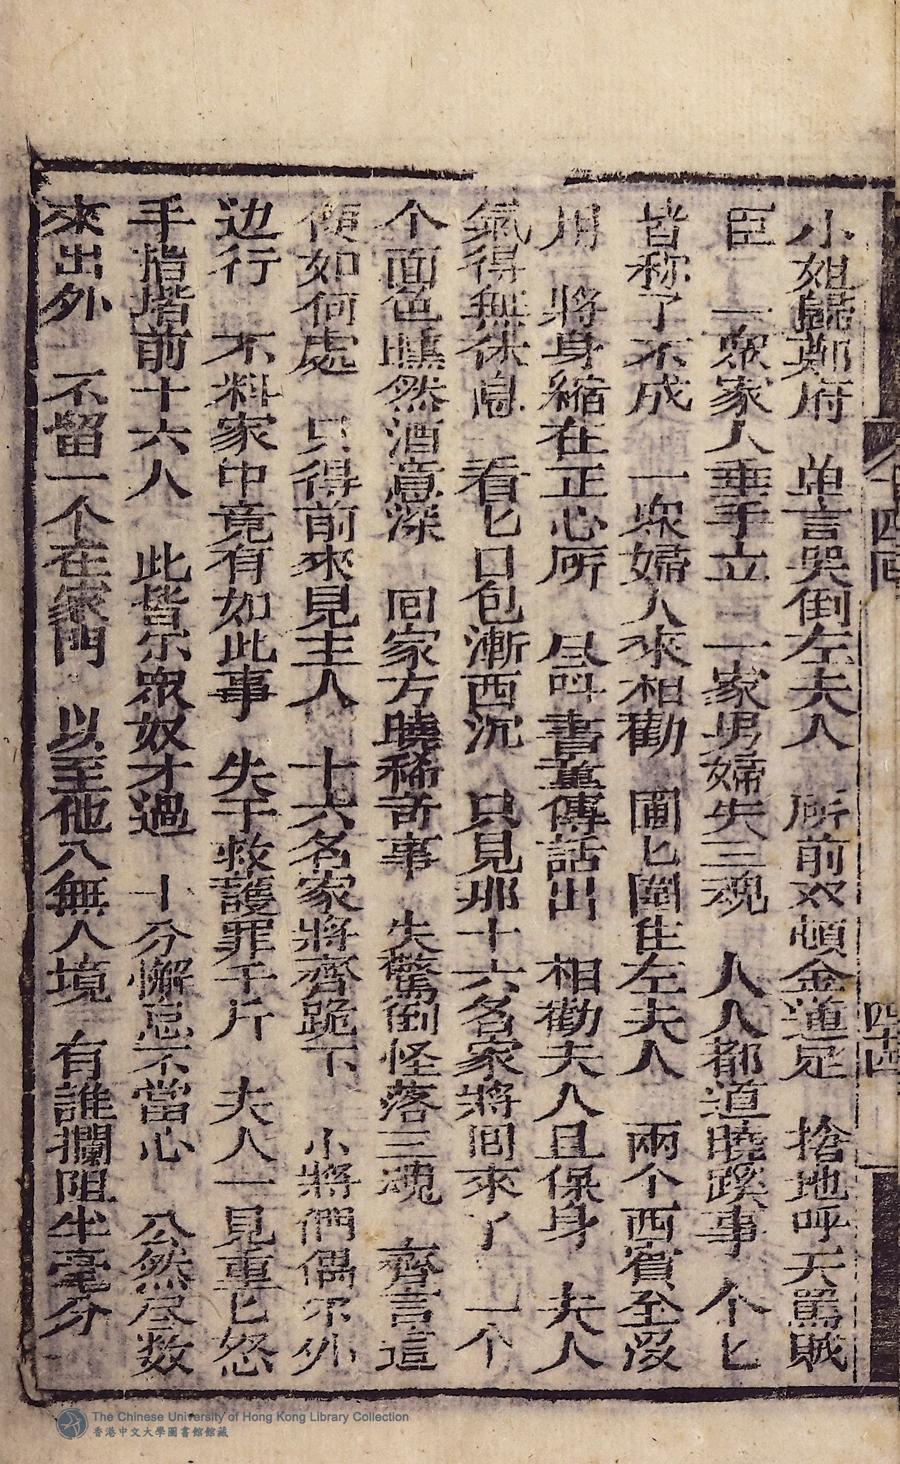 十四回
四十四
小姐歸鄭府　单言哭倒左夫人　所前双頓金蓮足　搶地呼天罵賊
臣　一衆家人垂手立　一家男婦失三魂　人人都道曉蹊事　个匕
皆称了不成　一衆婦人來相勸　團匕圍住左夫人　兩个西賓至没
用　將身縮在正心所　且叫書童傳話出　相勸夫人且保身　夫人
氣得無休息　看匕日色漸西沉　只見那十六名家將回來了　一个
个面色醺然酒意深　回家方曉稀奇事　失驚倒怪落三魂　齊言這
便如何處　只得前來見主人　十六名家將齊跪下　小將們偶尔外
边行　不料家中竟有如此事　失于救護罪千斤　夫人一見重匕怒
手指堦前十六人　此皆尔衆奴才過　十分懈怠不當心　公然尽数
來出外　不留一个在家門　以至他入無人境　有誰攔阻半毫分
The Chinese University of Hong Kong Library Collection
香港中文大學圖書館館藏